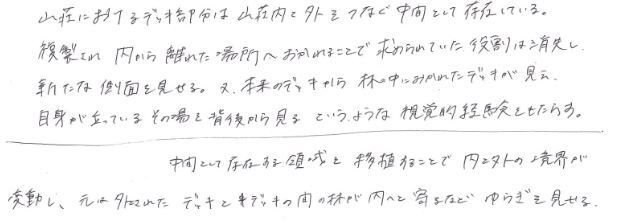 山荘におけるデッキ部分は山荘内と外をつなぐ中間として存在している。
複製され 内から離れた場所へおかれることで求められていた役割は消失し
新たな側面を見せる。又、本来のデッキから林の中におかれたデッキが見え
自身が立っているその場を背後から見る というような視覚的経験をもたらす。
中間として存在する領域を移植することで内と外の境界が
変動し、元は外とされたデッキとデッキの間の林が内へと寄るなど ゆらぎを見せる。